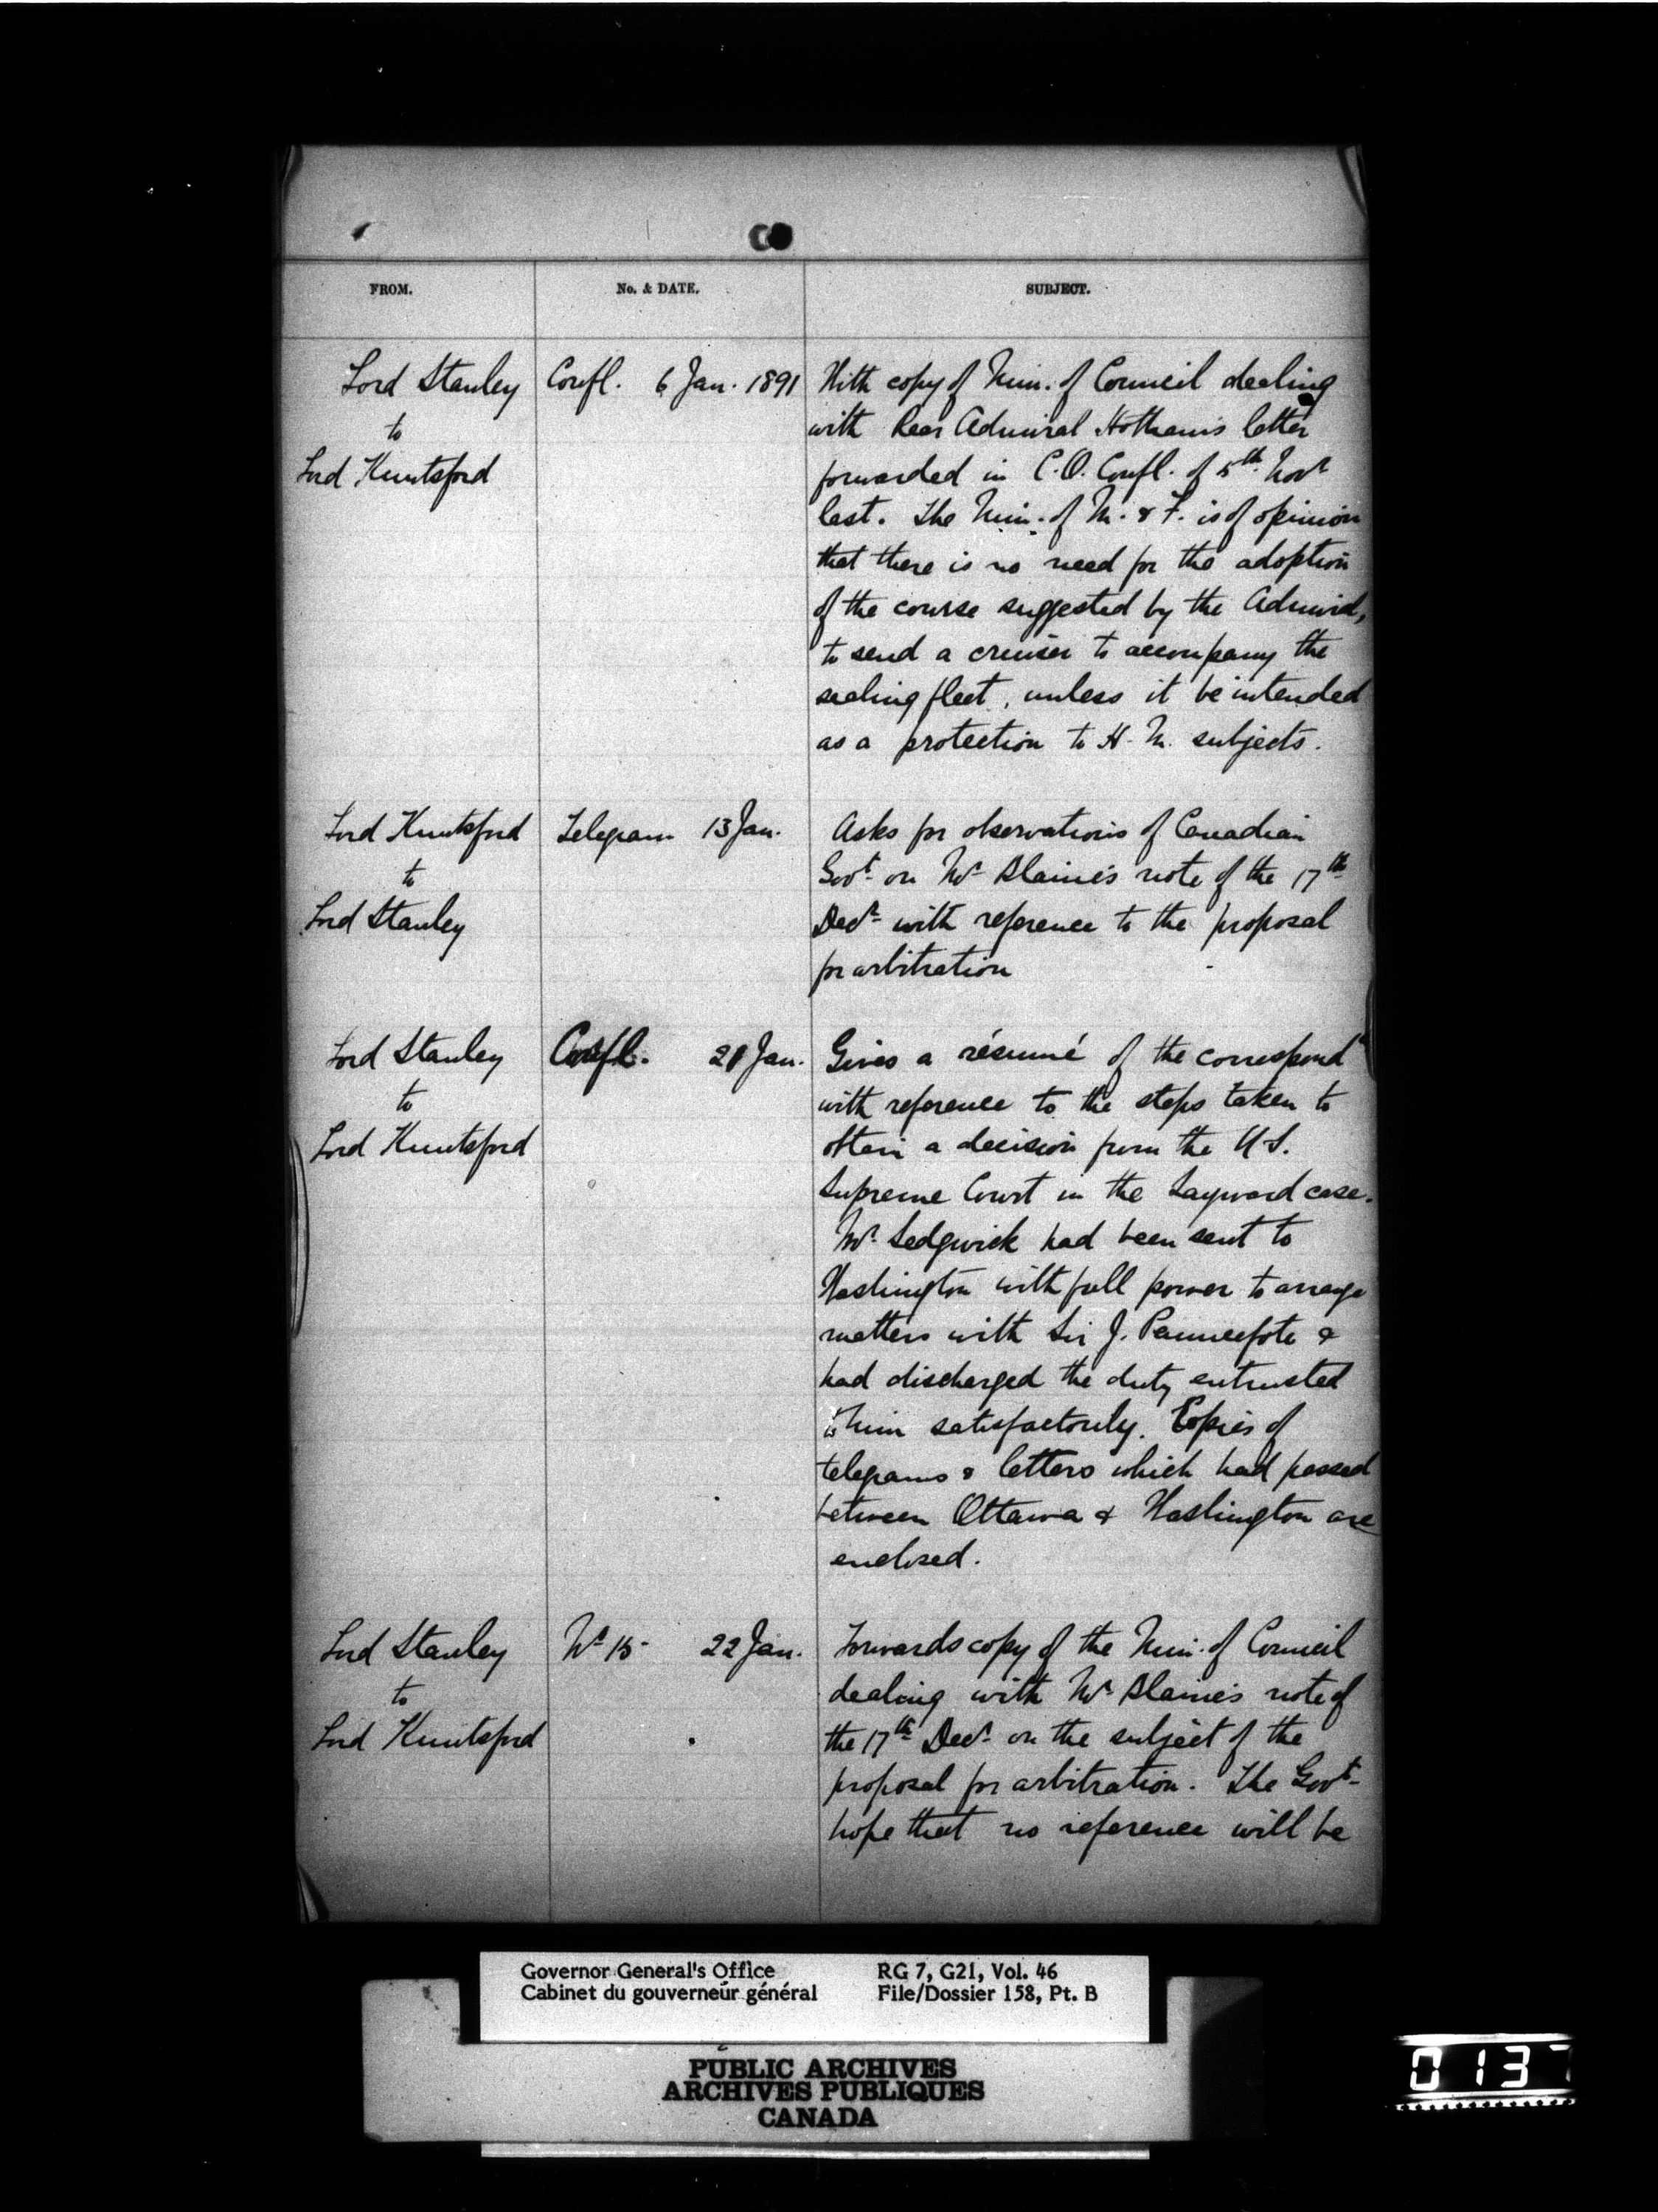 FROM. No. & DATE. SUBJECT.
Lord Stanley Confl. 6 Jan. 1891 With copy of Min. of Council dealing
to with Rear Admiral Hotham's letter
Lord Knutsford forwarded in C.O. Confl. of 5th Novr
last. The Min. of M. & F. is of opinion
that there is no need for the adoption
of the course suggested by the Admiral,
to send a cruiser to accompany the
sealing fleet, unless it be intended
as a protection to H.M. subjects.
Lord Knutsford Telegram 13 Jan. Asks for observations of Canadian
to Govt. on Mr. Blaine's note of the 17th
Lord Stanley Decr. with reference to the proposal
for arbitration
Lord Stanley Confl. 21 Jan. Gives a résumé of the correspond
to with reference to the steps taken to
Lord Knutsford obtain a decision from the U.S.
Supreme Court in the Sayward case.
Mr. Sedgwick had been sent to
Washington with full power to arrange
matters with Sir J. Pauncefote &
had discharged the duty entrusted
to him satisfactorily. Copies of
telegrams & letters which had passed
between Ottawa & Washington are
enclosed.
Lord Stanley No. 15 22 Jan. Forwards copy of the Min. of Council
to dealing with Mr. Blaine's note of
Lord Knutsford the 17th Decr. on the subject of the
proposal for arbitration. The Govt.
hope that no reference will be
Governor General's Office RG 7, G21, Vol. 46
Cabinet du gouverneur général File/Dossier 158, Pt. B
PUBLIC ARCHIVES
ARCHIVES PUBLIQUES
CANADA
0137